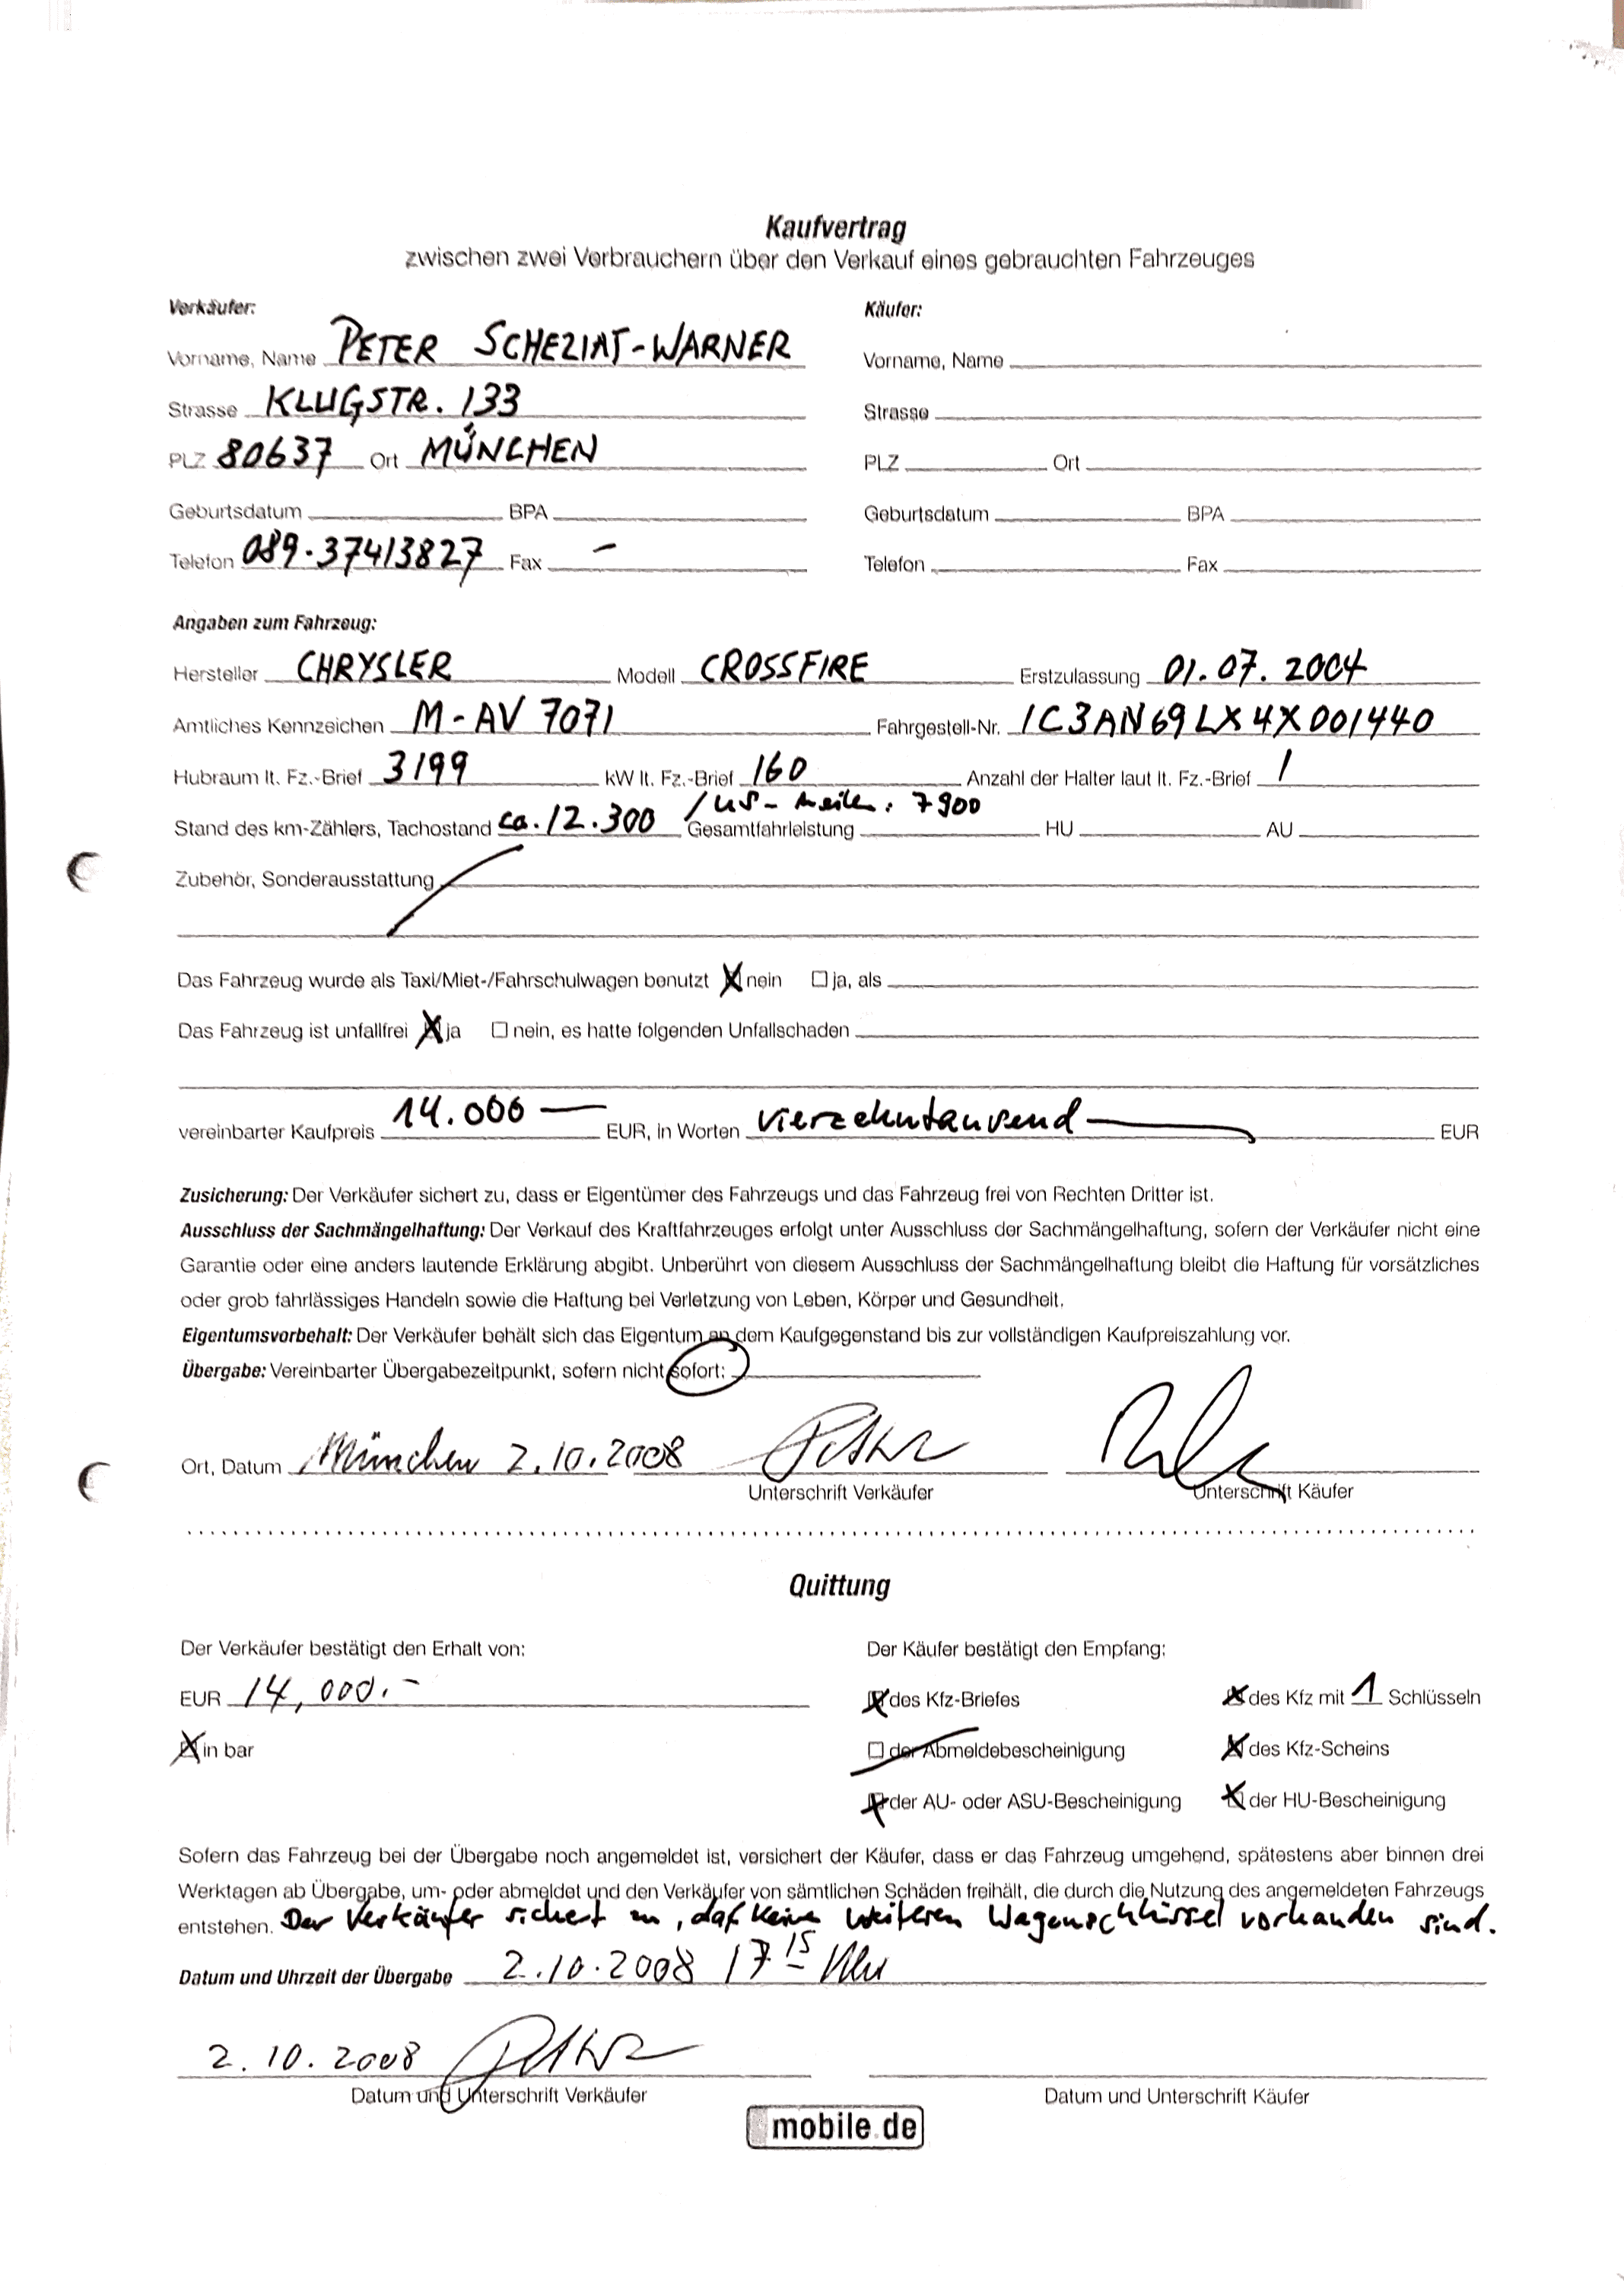 Kaufvertrag
zwischen zwei Verbrauchern über den Verkauf eines gebrauchten Fahrzeuges
Verkäufer:
Vorname, Name PETER SCHEZIAT-WARNER
Strasse KLUGSTR. 133
PLZ 80637 Ort MÜNCHEN
Geburtsdatum BPA
Telefon 089.37413827 Fax –
Käufer:
Vorname, Name
Strasse
PLZ Ort
Geburtsdatum BPA
Telefon Fax
Angaben zum Fahrzeug:
Hersteller CHRYSLER Modell CROSSFIRE Erstzulassung 01.07.2004
Amtliches Kennzeichen M-AV 7071 Fahrgestell-Nr. 1C3AN69LX4X001440
Hubraum lt. Fz.-Brief 3199 kW lt. Fz.-Brief 160 Anzahl der Halter laut lt. Fz.-Brief 1
Stand des km-Zählers, Tachostand ca. 12.300 / US-Meilen: 7900 Gesamtfahrleistung HU AU
Zubehör, Sonderausstattung
Das Fahrzeug wurde als Taxi/Miet-/Fahrschulwagen benutzt ☒ nein ☐ ja, als
Das Fahrzeug ist unfallfrei ☒ ja ☐ nein, es hatte folgenden Unfallschaden
vereinbarter Kaufpreis 14.000 — EUR, in Worten vierzehntausend — EUR
Zusicherung: Der Verkäufer sichert zu, dass er Eigentümer des Fahrzeugs und das Fahrzeug frei von Rechten Dritter ist.
Ausschluss der Sachmängelhaftung: Der Verkauf des Kraftfahrzeuges erfolgt unter Ausschluss der Sachmängelhaftung, sofern der Verkäufer nicht eine
Garantie oder eine anders lautende Erklärung abgibt. Unberührt von diesem Ausschluss der Sachmängelhaftung bleibt die Haftung für vorsätzliches
oder grob fahrlässiges Handeln sowie die Haftung bei Verletzung von Leben, Körper und Gesundheit.
Eigentumsvorbehalt: Der Verkäufer behält sich das Eigentum an dem Kaufgegenstand bis zur vollständigen Kaufpreiszahlung vor.
Übergabe: Vereinbarter Übergabezeitpunkt, sofern nicht sofort:
Ort, Datum München 2.10.2008
Unterschrift Verkäufer Unterschrift Käufer
Quittung
Der Verkäufer bestätigt den Erhalt von:
EUR 14,000.-
☒ in bar
Der Käufer bestätigt den Empfang:
☒ des Kfz-Briefes ☒ des Kfz mit 1 Schlüsseln
☐ der Abmeldebescheinigung ☒ des Kfz-Scheins
☒ der AU- oder ASU-Bescheinigung ☒ der HU-Bescheinigung
Sofern das Fahrzeug bei der Übergabe noch angemeldet ist, versichert der Käufer, dass er das Fahrzeug umgehend, spätestens aber binnen drei
Werktagen ab Übergabe, um- oder abmeldet und den Verkäufer von sämtlichen Schäden freihält, die durch die Nutzung des angemeldeten Fahrzeugs
entstehen. Der Verkäufer sichert zu, daß keine weiteren Wagenschlüssel vorhanden sind.
Datum und Uhrzeit der Übergabe 2.10.2008 17 15 Uhr
2.10.2008
Datum und Unterschrift Verkäufer Datum und Unterschrift Käufer
mobile.de